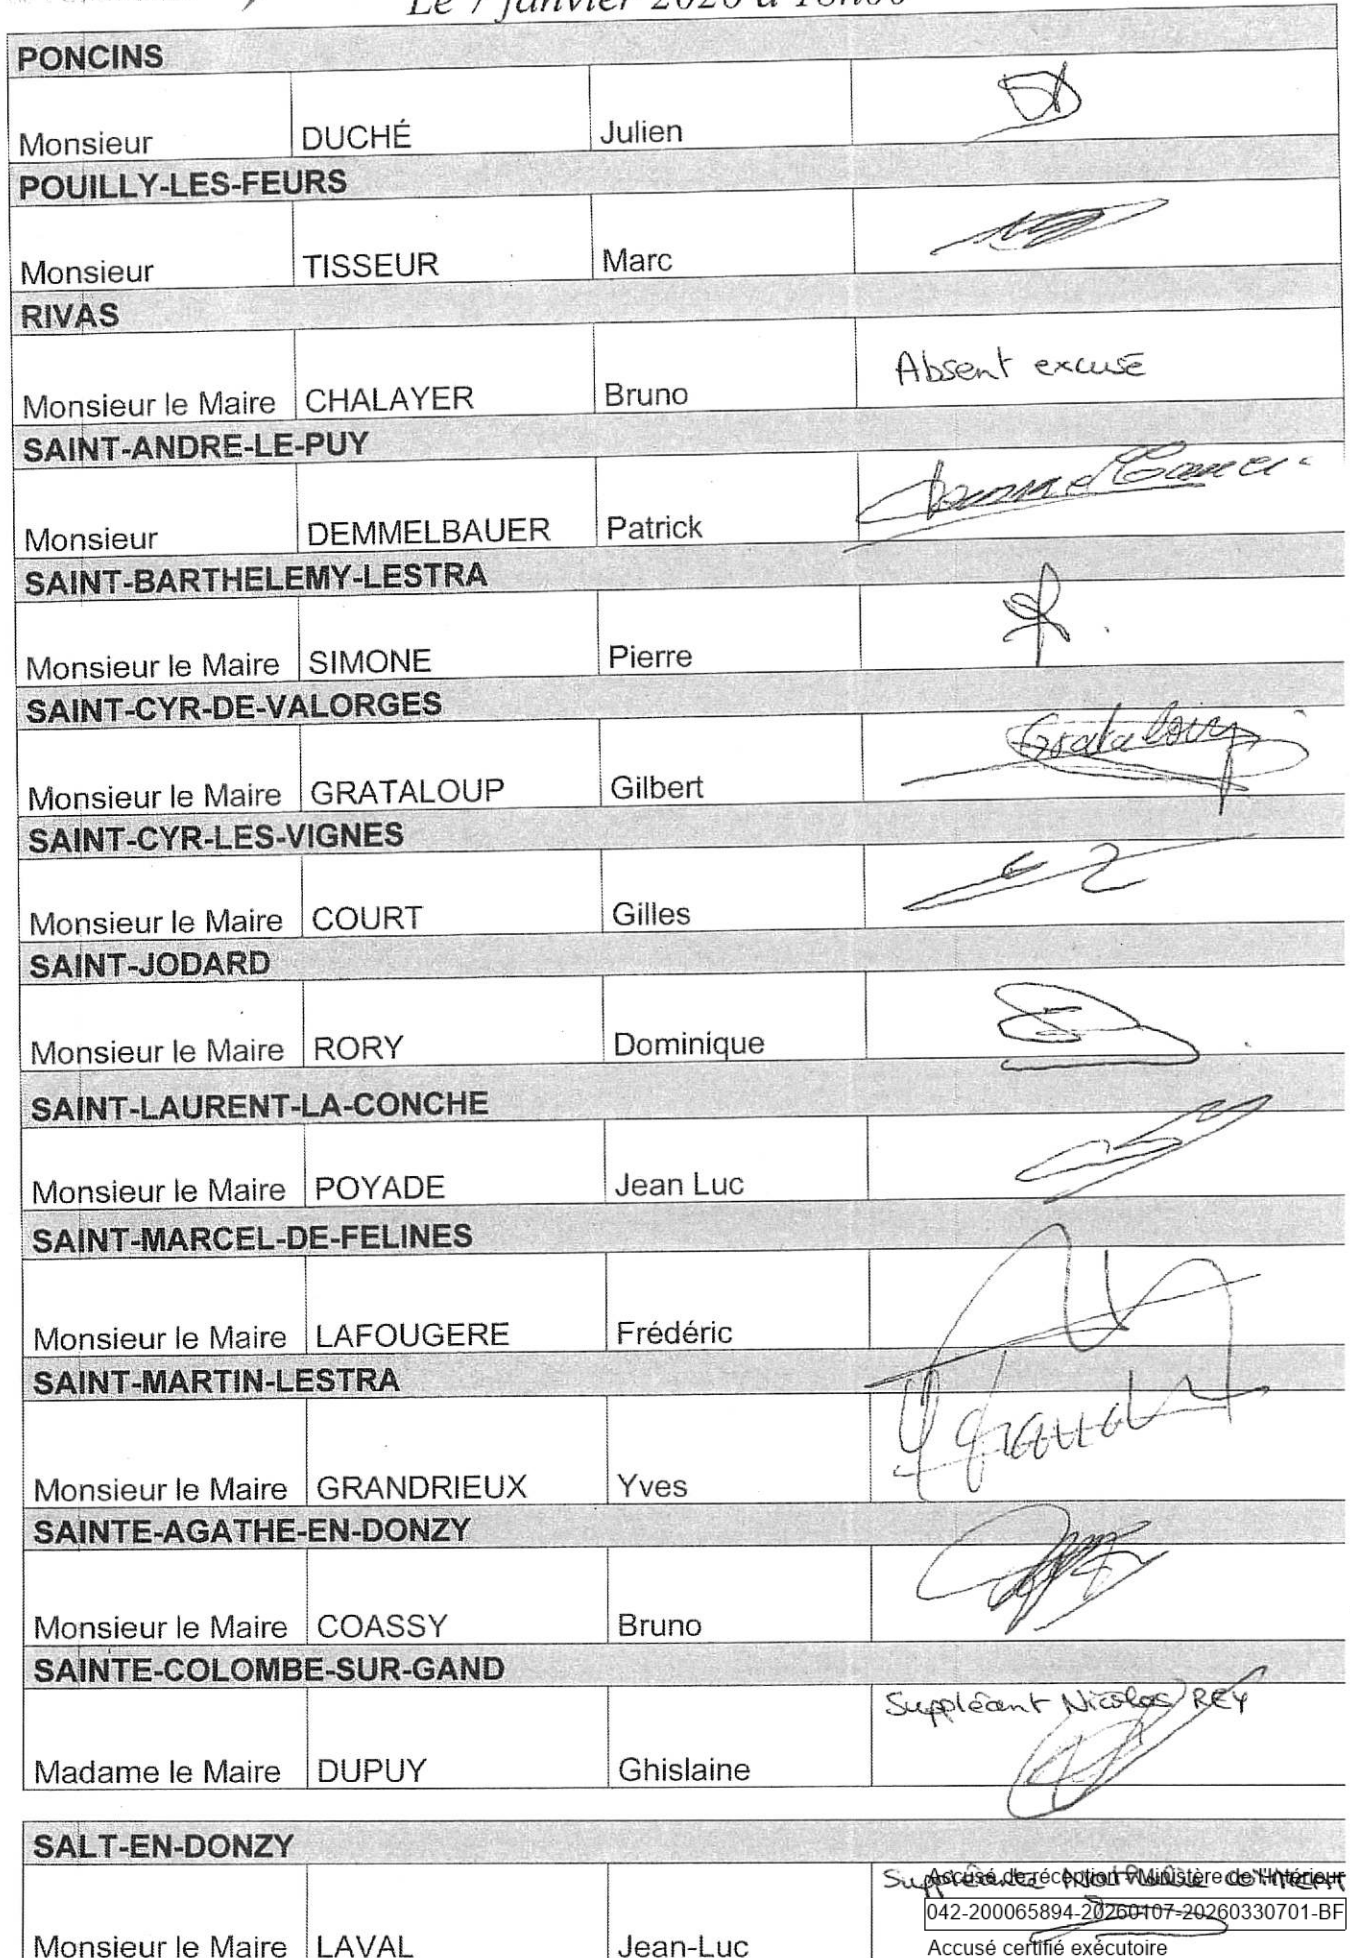 Le 7 janvier 2026 à 18h00
PONCINS
Monsieur DUCHÉ Julien
POUILLY-LES-FEURS
Monsieur TISSEUR Marc
RIVAS
Monsieur le Maire CHALAYER Bruno Absent excusé
SAINT-ANDRE-LE-PUY
Monsieur DEMMELBAUER Patrick
SAINT-BARTHELEMY-LESTRA
Monsieur le Maire SIMONE Pierre
SAINT-CYR-DE-VALORGES
Monsieur le Maire GRATALOUP Gilbert Grataloup
SAINT-CYR-LES-VIGNES
Monsieur le Maire COURT Gilles
SAINT-JODARD
Monsieur le Maire RORY Dominique
SAINT-LAURENT-LA-CONCHE
Monsieur le Maire POYADE Jean Luc
SAINT-MARCEL-DE-FELINES
Monsieur le Maire LAFOUGERE Frédéric
SAINT-MARTIN-LESTRA
Monsieur le Maire GRANDRIEUX Yves
SAINTE-AGATHE-EN-DONZY
Monsieur le Maire COASSY Bruno
SAINTE-COLOMBE-SUR-GAND
Suppléant Nicolas REY
Madame le Maire DUPUY Ghislaine
SALT-EN-DONZY
Suppléante
Accusé de réception - Ministère de l'Intérieur
042-200065894-20260107-20260330701-BF
Monsieur le Maire LAVAL Jean-Luc
Accusé certifié exécutoire